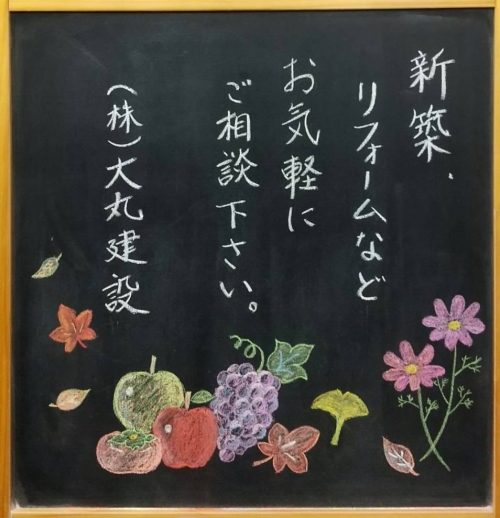 新築、
リフォームなど
お気軽に
ご相談下さい。
(株)大丸建設